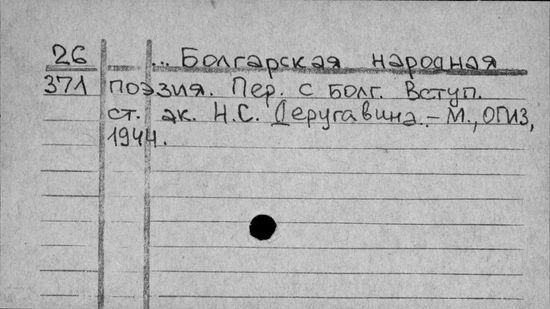 26 ... Болгарская народная
371 поэзия. Пер. с болг. Вступ.
ст. ак. Н.С. Деругавина.-М., ОГИЗ,
1944.